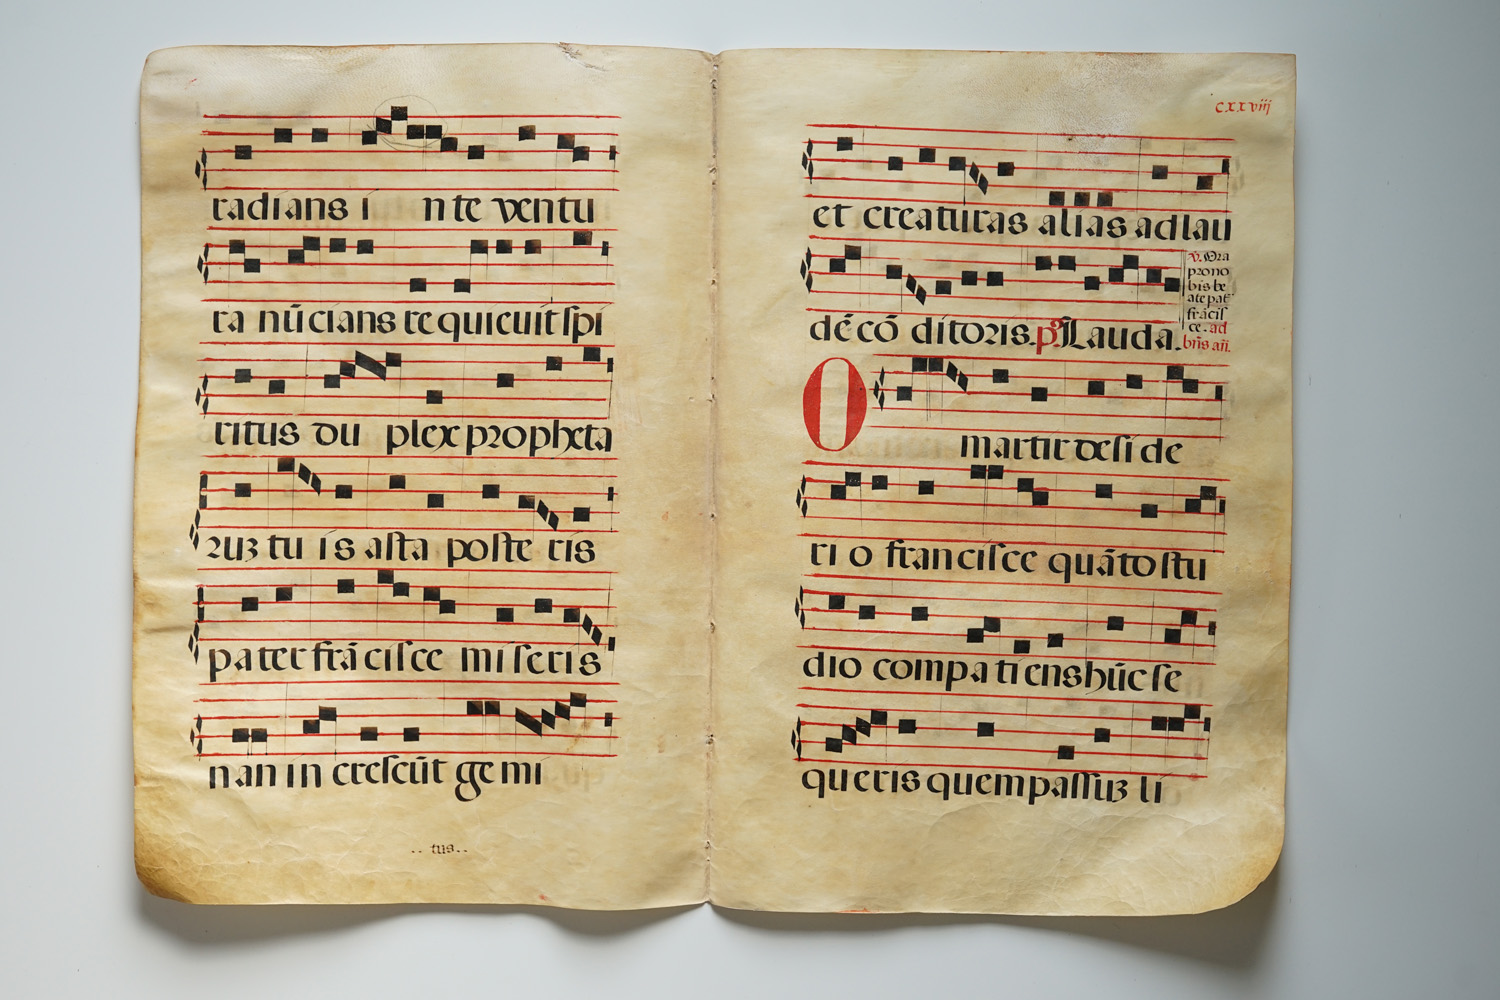 radians i nte ventu
ra nūcians re quieuit spi
ritus du plex propheta
ꝛuꝫ tu is asta poste ris
pater frācisce miseris
nan in crescūt ge mi
.. tus..
cxxviij
et creaturas alias ad lau
dē cō ditoris. p̄s Lauda.
v. Ora
pro no
bis be
ate pat̄
frācis
ce. ad
bn̄s an̄.
O martir desi de
ri o francisce quāto stu
dio compa ti ens hūc se
queris quem passuꝫ li